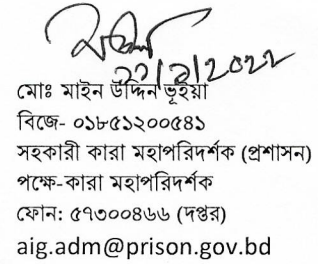 ২২/৯/২০২২
মোঃ মাইন উদ্দিন ভূইয়া
বিজে- ০১৮৫১২০০৫৪১
সহকারী কারা মহাপরিদর্শক (প্রশাসন)
পক্ষে-কারা মহাপরিদর্শক
ফোন: ৫৭৩০০৪৬৬ (দপ্তর)
aig.adm@prison.gov.bd